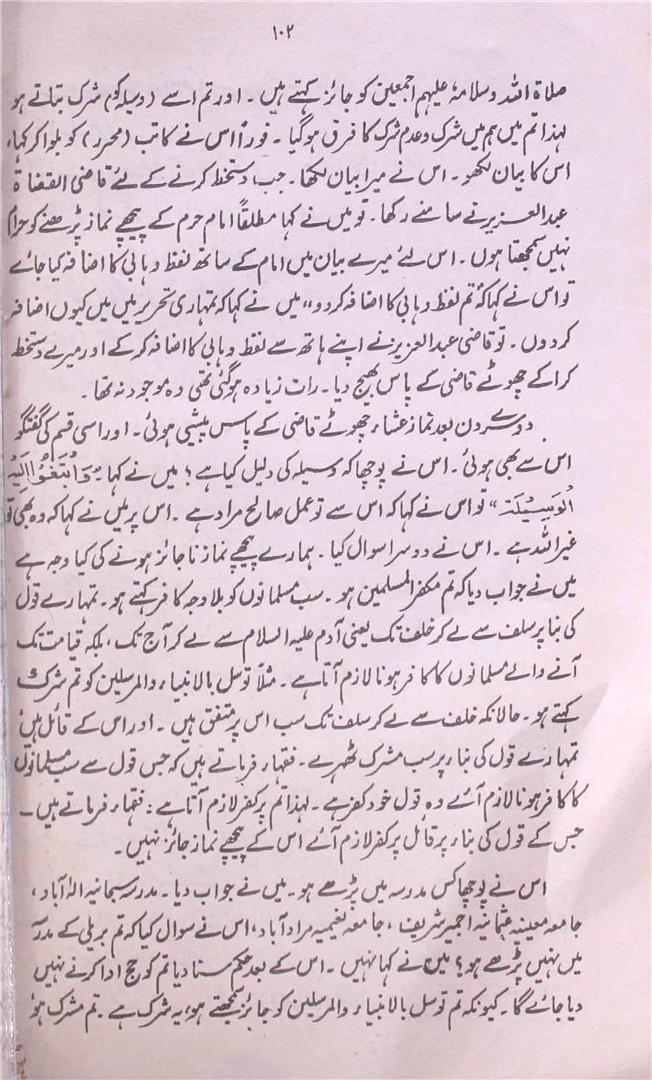 ۱۰۲
صلاۃ اللہ وسلامہٗ علیہم اجمعین کو جائز کہتے ہیں ۔ اور تم اسے (وسیلہ کو) شرک بتاتے ہو
لہٰذا تم میں ہم میں شرک و عدم شرک کا فرق ہوگیا ۔ فوراً اس نے کاتب (محرر) کو بلوا کر کہا،
اس کا بیان لکھو ۔ اس نے میرا بیان لکھا ۔ جب دستخط کرنے کے لئے قاضی القضاۃ
عبدالعزیز نے سامنے رکھا ۔ تو میں نے کہا مطلقاً امام حرم کے پیچھے نماز پڑھنے کو حرام
نہیں سمجھتا ہوں ۔ اس لئے میرے بیان میں امام کے ساتھ لفظ وہابی کا اضافہ کیا جائے
تو اس نے کہا کہ تم لفظ وہابی کا اضافہ کردو،، میں نے کہا کہ تمہاری تحریر میں میں کیوں اضافہ
کردوں ۔ تو قاضی عبدالعزیز نے اپنے ہاتھ سے لفظ وہابی کا اضافہ کرکے اور میرے دستخط
کرا کے چھوٹے قاضی کے پاس بھیج دیا ۔ رات زیادہ ہوگئی تھی وہ موجود نہ تھا ۔
دوسرے دن بعد نماز عشاء چھوٹے قاضی کے پاس پیشی ہوئی ۔ اور اسی قسم کی گفتگو
اس سے بھی ہوئی ۔ اس نے پوچھا کہ وسیلہ کی دلیل کیا ہے ؟ میں نے کہا ،،وَابْتَغُوْا اِلَیْہِ
الْوَسِیْلَۃَ،، تو اس نے کہا کہ اس سے تو عمل صالح مراد ہے ۔ اس پر میں نے کہا کہ وہ بھی تو
غیراللہ ہے ۔ اس نے دوسرا سوال کیا ۔ ہمارے پیچھے نماز ناجائز ہونے کی کیا وجہ ہے
میں نے جواب دیا کہ تم مکفر المسلمین ہو ۔ سب مسلمانوں کو بلاوجہ کافر کہتے ہو ۔ تمہارے قول
کی بنا پر سلف سے لے کر خلف تک یعنی آدم علیہ السلام سے لے کر آج تک ، بلکہ قیامت تک
آنے والے مسلمانوں کا کافر ہونا لازم آتا ہے ۔ مثلاً توسل بالانبیاء والمرسلین کو تم شرک
کہتے ہو ۔ حالانکہ خلف سے لے کر سلف تک سب اس پر متفق ہیں ۔ اور اس کے قائل ہیں
تمہارے قول کی بناء پر سب مشرک ٹھہرے ۔ فقہاء فرماتے ہیں کہ جس قول سے سب مسلمانوں
کا کافر ہونا لازم آئے وہ قول خود کفر ہے ۔ لہٰذا تم پر کفر لازم آتا ہے : فقہاء فرماتے ہیں ۔
جس کے قول کی بناء پر قائل پر کفر لازم آئے اس کے پیچھے نماز جائز نہیں ۔
اس نے پوچھا کس مدرسہ میں پڑھے ہو ۔ میں نے جواب دیا ۔ مدرسہ سبحانیہ الٰہ آباد ،
جامعہ معینیہ عثمانیہ اجمیر شریف ، جامعہ نعیمیہ مراد آباد ، اس نے سوال کیا کہ تم بریلی کے مدرسہ
میں نہیں پڑھے ہو ؟ میں نے کہا نہیں ۔ اس کے بعد حکم سنا دیا تم کو حج ادا کرنے نہیں
دیا جائے گا ۔ کیونکہ تم توسل بالانبیاء والمرسلین کو جائز سمجھتے ہو، یہ شرک ہے ۔ تم مشرک ہو